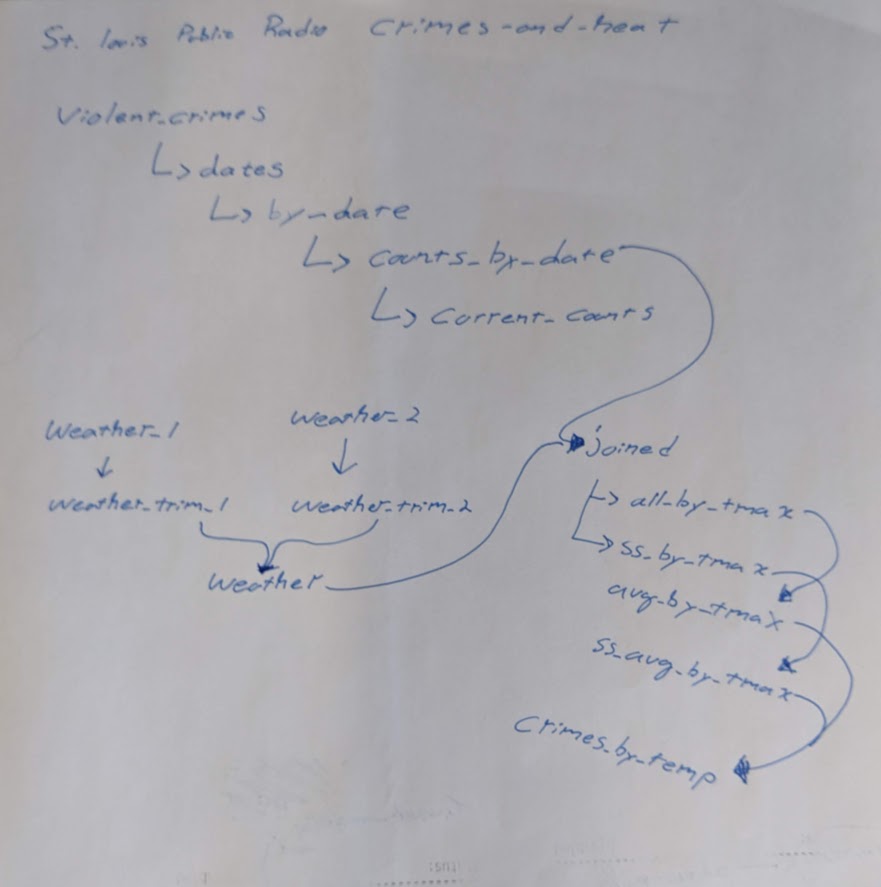 St. louis Public Radio Crimes-and-heat
Violent_crimes
dates
by_date
counts_by_date
current_counts
weather_1
weather_2
joined
weather_trim_1
weather_trim_2
all_by_tmax
ss_by_tmax
weather
avg_by_tmax
ss_avg_by_tmax
Crimes_by_temp